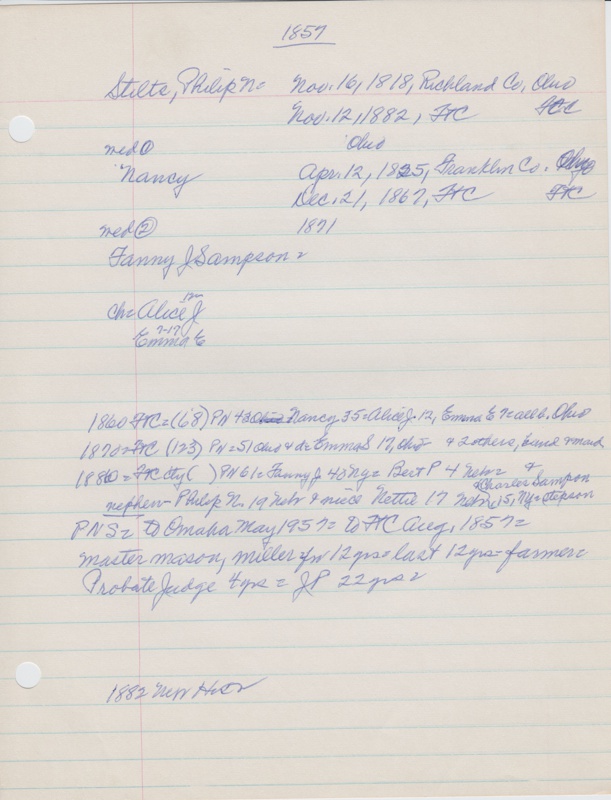 1857
Stilts, Philip N= Nov. 16, 1818, Richland Co, Ohio
Nov. 12, 1882, FC FCC
med ① Ohio
Nancy Apr. 12, 1825, Franklin Co. Ohio
Dec. 21, 1867, FC FC
med ② 1871
Fanny J Sampson=
12m
ch= Alice J
7-17
Emma E
1860 FC= (168) PN 42 Ohio Nancy 35= Alice J. 12, Emma E 7= all b. Ohio
1870= FC (123) PN= 51 Ohio & d= Emma S 17, Ohio & 2 others, hand & maid
1880= FC cty ( ) PN 61= Fanny J 43 Ny= Bert P 4 Nebr= &
Charles Sampson
nephew- Philip N. 19 Nebr & niece Nettie 17 Nebr, 15, Ny= stepson
PNS= to Omaha May 1957= to FC Aug, 1857=
master mason, miller fr 12 yrs= last 12 yrs= farmer=
Probate Judge 4 yrs = JP 22 yrs=
1882 New Hist